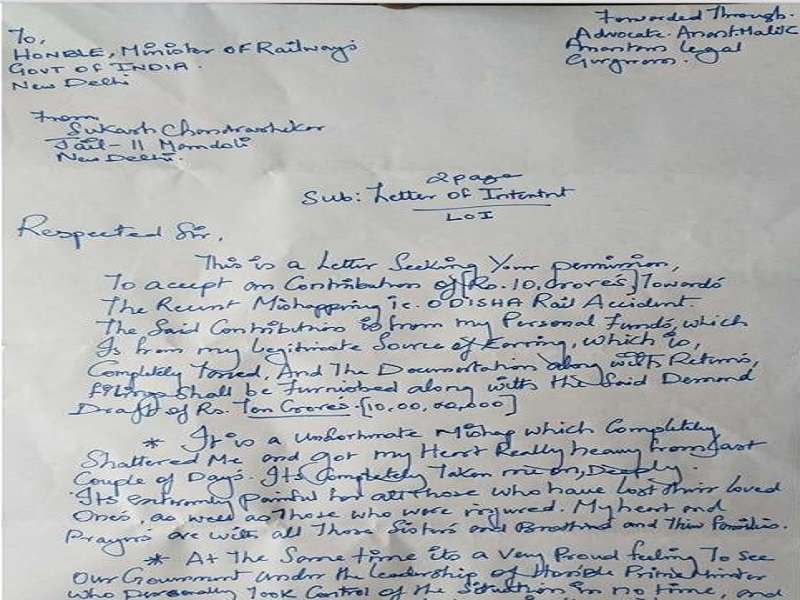 Forwarded Through.
Advocate. Anant Malik
Anantam Legal
Gurgaon.
To,
HONBLE, Minister of Railways
GOVT OF INDIA.
New Delhi
From
Sukash Chandrashekar
Jail - 11 Mandoli
New Delhi.
2 page
Sub: Letter of Intentnt
LOI
Respected Sir,
This is a Letter Seeking Your permission,
To accept an Contribution of [Rs. 10. Crores] Towards
The Recent Mishappning ie. ODISHA Rail Accident.
The Said Contribution is from my Personal Funds, which
Is from my Legitimate Source of Earning, which is,
Completely Taxed, And The Documentation along with Returns,
filings shall be furnished along with the Said Demand
Draft of Rs. Ten Crores. [10,00,00,000]
* It is a Unfortunate Mishap which Completely
Shattered Me and got my Heart Really heavy from last
Couple of Days. Its Completely Taken me on, Deeply.
Its Extremly painful for all those who have lost their loved
Ones, as well as Those who were injured. My heart and
Prayers are with all Those Sisters and Brothers and Their Families.
* At The Same time its a Very Proud feeling To See
Our Government under the leadership of Honble Prime Minister
who personally Took Control of the Situation in no time, and